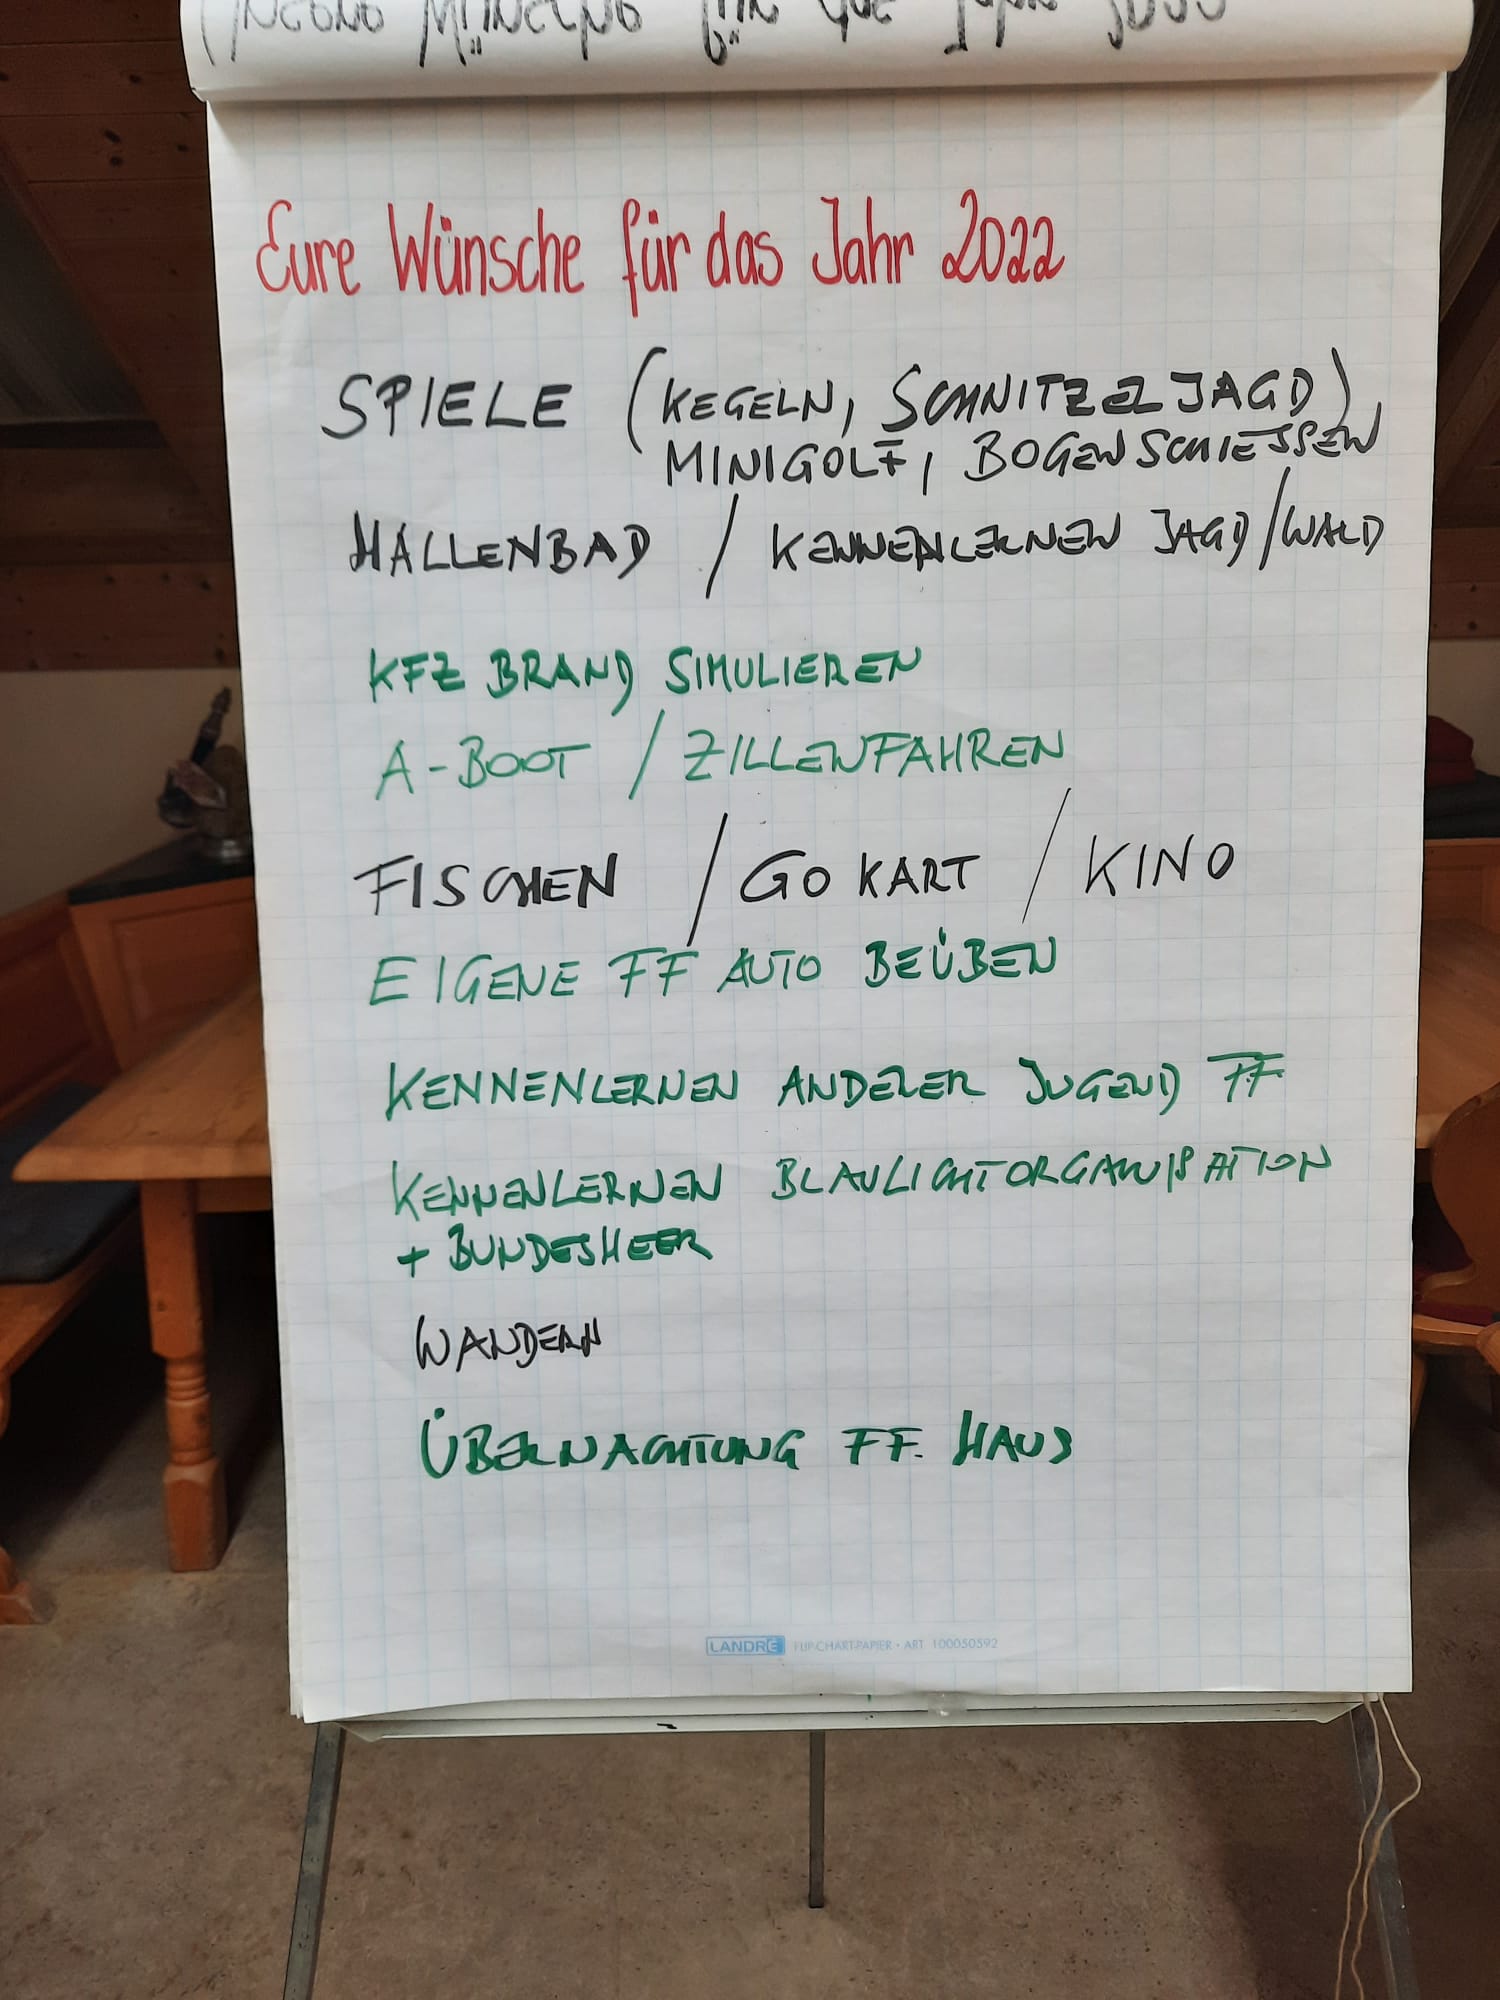 Eure Wünsche für das Jahr 2022
SPIELE (KEGELN, SCHNITZELJAGD),
MINIGOLF, BOGENSCHIESSEN
HALLENBAD / KENNENLERNEN JAGD/WALD
KFZ BRAND SIMULIEREN
A-BOOT / ZILLENFAHREN
FISCHEN / GO KART / KINO
EIGENE FF AUTO BEÜBEN
KENNENLERNEN ANDERER JUGEND FF
KENNENLERNEN BLAULICHTORGANISATION
+ BUNDESHEER
WANDERN
ÜBERNACHTUNG FF. HAUS
LANDRÉ FLIP-CHART-PAPIER • ART. 100050592